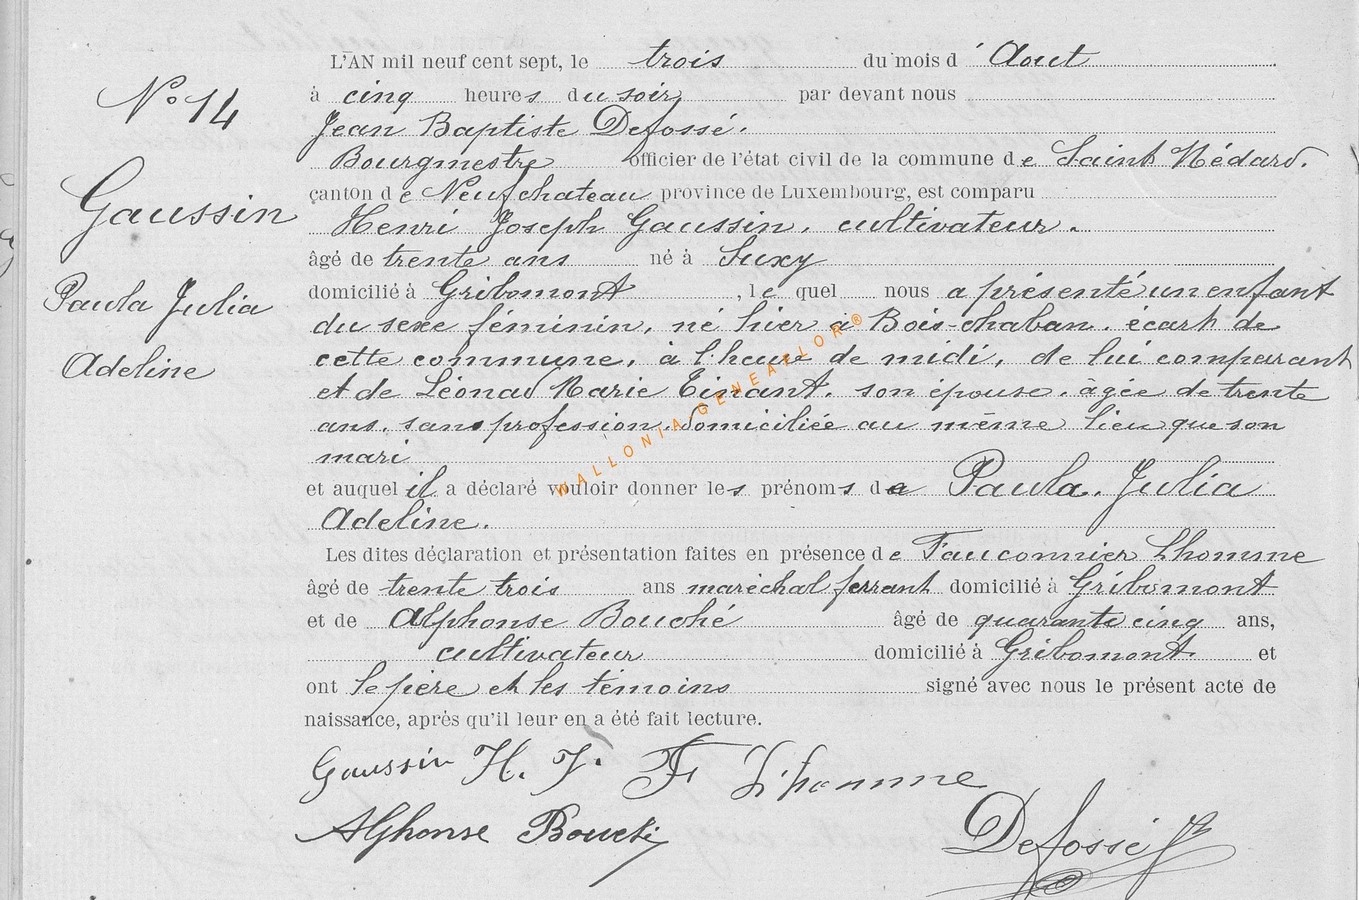 N° 14
Gaussin
Paula Julia
Adeline
L'AN mil neuf cent sept, le trois du mois d'Aout
à cinq heures du soir, par devant nous
Jean Baptiste Defossé.
Bourgmestre officier de l'état civil de la commune de Saint Médard.
canton de Neufchateau province de Luxembourg, est comparu
Henri Joseph Gaussin, cultivateur.
âgé de trente ans né à Suxy
domicilié à Gribomont, lequel nous a présenté un enfant
du sexe féminin, né hier à Bois-chaban, écart de
cette commune, à l'heure de midi, de lui comparant
et de Léonad Marie Einant, son épouse, âgée de trente
ans, sans profession, domiciliée au même lieu que son
mari
et auquel il a déclaré vouloir donner les prénoms de Paula, Julia
Adeline.
Les dites déclaration et présentation faites en présence de Fauconnier Lhomme
âgé de trente trois ans maréchal ferrant domicilié à Gribomont
et de Alphonse Bouché âgé de quarante cinq ans,
cultivateur domicilié à Gribomont et
ont le père et les témoins signé avec nous le présent acte de
naissance, après qu'il leur en a été fait lecture.
Gaussin H. J. F Lhomme
Alphonse Bouché
Defossé JB
WALLONIA-GENEALLOR®